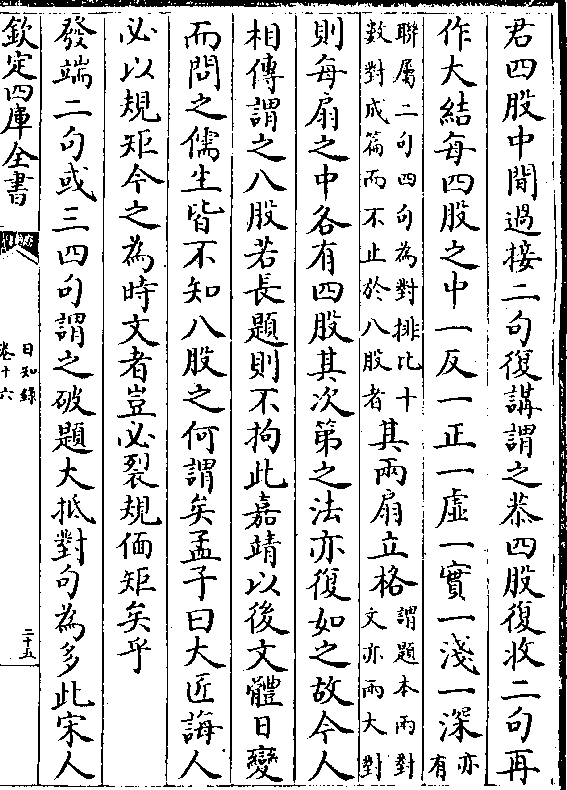 君四股中間過接二句復講謂之恭四股復收二句再
作大結每四股之中一反一正一虛一實一淺一深亦有
聯屬二句四句為對排比十數對成篇而不止於八股者其兩扇立格謂題本兩對文亦兩大對
則每扇之中各有四股其次第之法亦復如之故今人
相傳謂之八股若長題則不拘此嘉靖以後文體日變
而問之儒生皆不知八股之何謂矣孟子曰大匠誨人
必以規矩今之為時文者豈必裂規偭矩矣乎
發端二句或三四句謂之破題大抵對句為多此宋人
欽定四庫全書
日知錄
卷十六
二十五